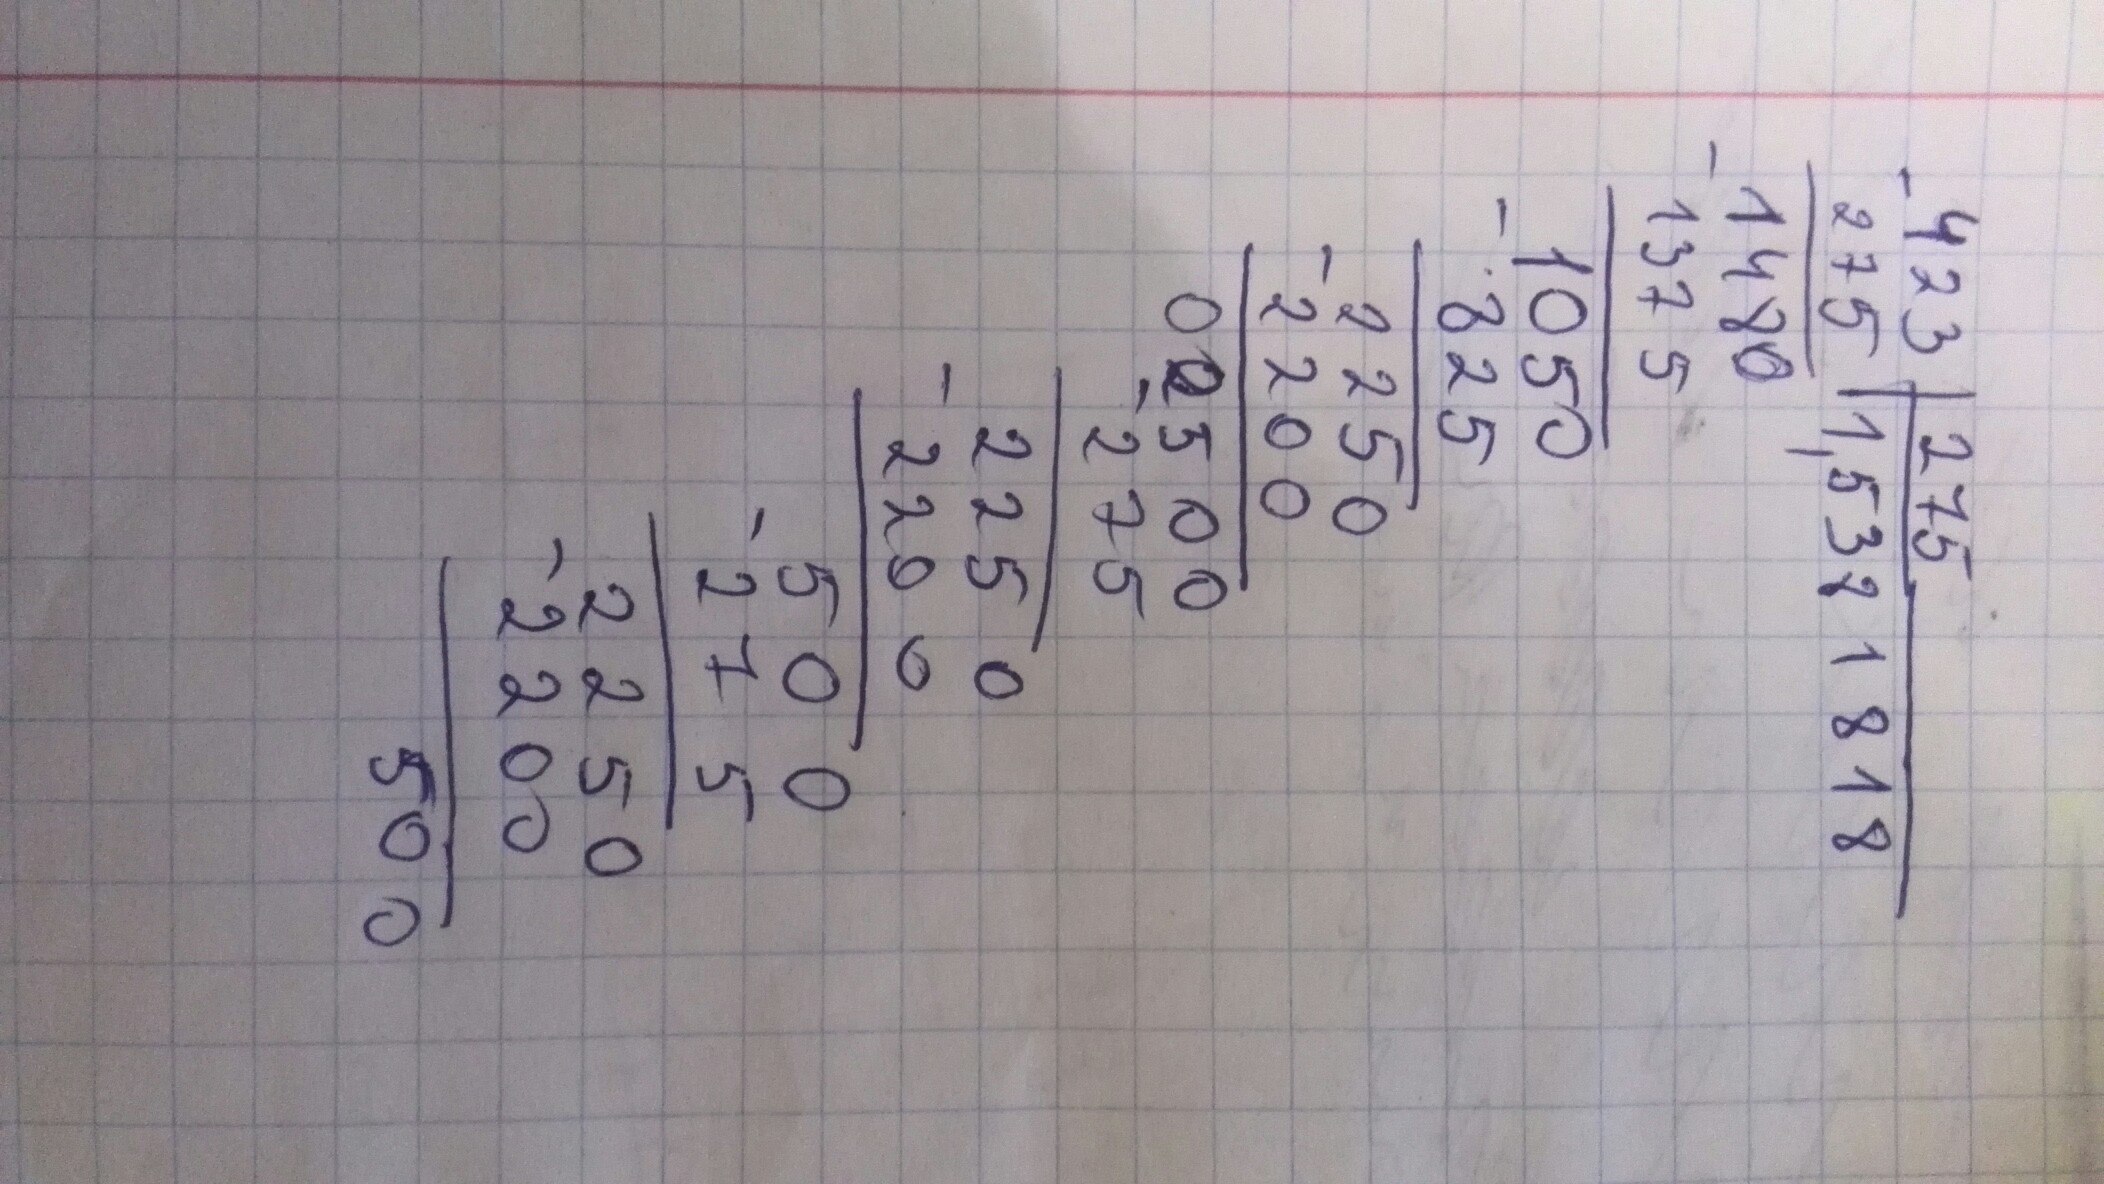 - 423 | 275
275 | 1,5381818
- 1480
1375
- 1050
825
- 2250
2200
0 500
- 275
2250
- 2200
500
- 275
2250
- 2200
500